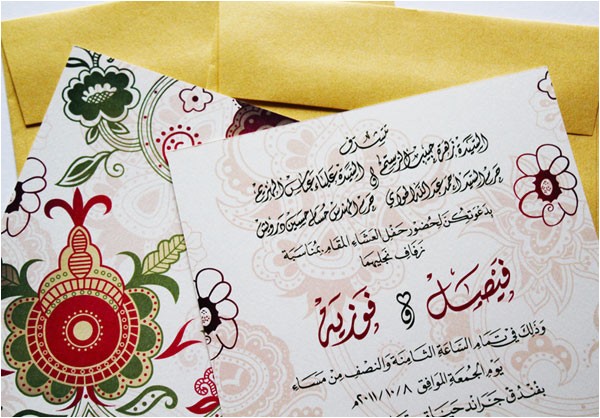 تتشرف
السيدة زهرة حبيب الرستم و السيدة علياء عباس
حرم السيد احمد عبدالله حرم المهندس حسين درويش
بدعوتكن لحضور حفل العشاء المقام بمناسبة
زفاف نجليهما
فيصل و فوزية
وذلك في تمام الساعة الثامنة والنصف من مساء
يوم الجمعة الموافق ٢٠١١/١٠/٨
بفندق جراند